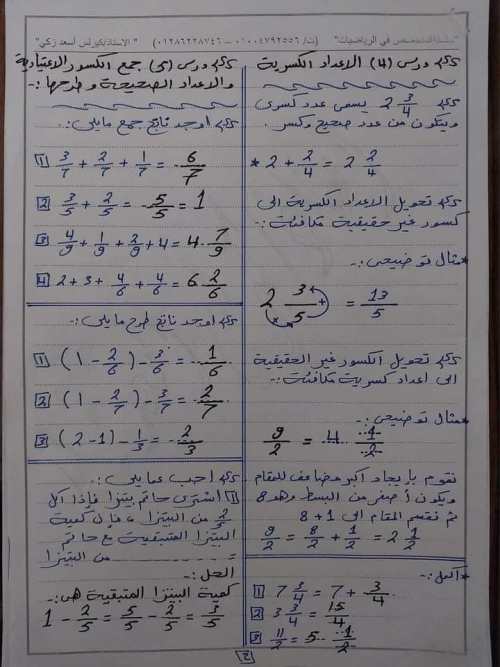 "سلسلة المتخصص في الرياضيات" (ت/ ٠١٠٠٤٧٩٢٥٥٦ - ٠١٢٨٦٢٢٨٧٤٦) "الاستاذ/كيرلس أسعد زكي"
درس (4) الاعداد الكسرية
2 3/4 يسمى عدد كسرى
ويتكون من عدد صحيح وكسر.
* 2 + 2/4 = 2 2/4
تحويل الاعداد الكسرية الى
كسور غير حقيقية مكافئة:-
* مثال توضيحى:-
2 3/5 = 13/5
تحويل الكسور غير الحقيقية
الى اعداد كسرية مكافئة:-
* مثال توضيحى:-
9/2 = 4 1/2
نقوم بايجاد اكبر مضاعف للمقام
ويكون أصغر من البسط وهو 8
ثم نقسم المقام الى 1 + 8
9/2 = 8/2 + 1/2 = 2 1/2
* اكمل:-
1 7 3/4 = 7 + 3/4
2 3 3/4 = 15/4
3 11/2 = 5 1/2
درس (5) جمع الكسور الاعتيادية
والاعداد الصحيحة وطرحها:-
اوجد ناتج جمع مايلى:-
1 3/7 + 2/7 + 1/7 = 6/7
2 3/5 + 2/5 = 5/5 = 1
3 4/9 + 1/9 + 2/9 + 4 = 4 7/9
4 2 + 3 + 4/6 + 4/6 = 6 2/6
اوجد ناتج طرح مايلى:-
1 (1 - 2/6) - 3/6 = 1/6
2 (1 - 2/7) - 3/7 = 2/7
3 (2 - 1) - 1/3 = 2/3
اجب عما يلى:-
1 اشترى حاتم بيتزا فإذا اكل
2/5 من البيتزا ، فإن كمية
البيتزا المتبقية مع حاتم
= من البيتزا
الحل:-
كمية البيتزا المتبقية هى:-
1 - 2/5 = 5/5 - 2/5 = 3/5
2